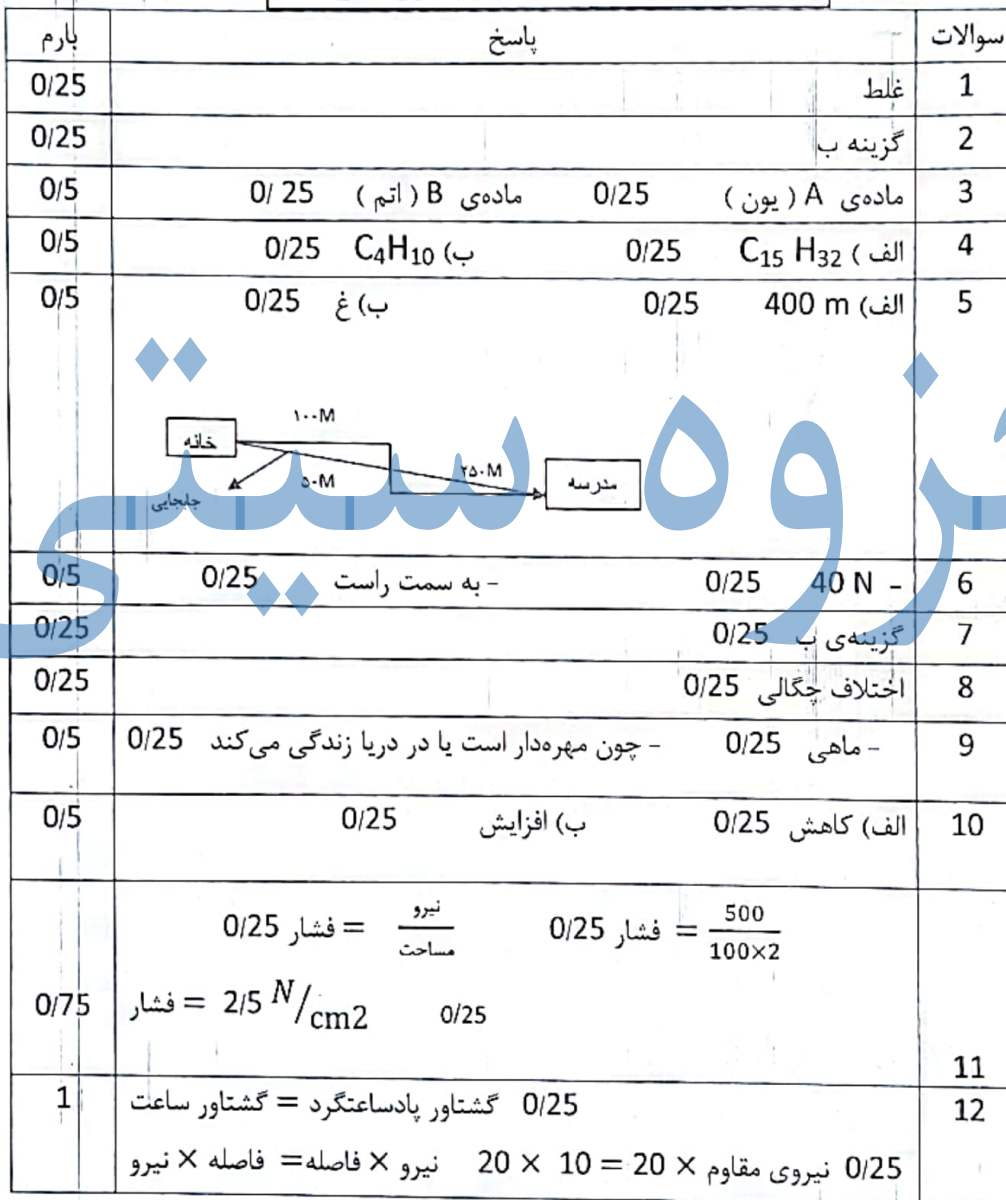 سوالات پاسخ بارم
1 غلط 0/25
2 گزینه ب 0/25
3 ماده‌ی A ( یون ) 0/25 ماده‌ی B ( اتم ) 0/ 25 0/5
4 الف ) C15 H32 0/25 ب) C4H10 0/25 0/5
5 الف) 400 m 0/25 ب) غ 0/25 0/5
۱۰۰M
خانه
۲۵۰M
مدرسه
۵۰M
جابجایی
6 - 40 N 0/25 - به سمت راست 0/25 0/5
7 گزینه‌ی ب 0/25 0/25
8 اختلاف چگالی 0/25 0/25
9 - ماهی 0/25 - چون مهره‌دار است یا در دریا زندگی می‌کند 0/25 0/5
10 الف) کاهش 0/25 ب) افزایش 0/25 0/5
0/25 فشار = نیرو / مساحت 0/25 فشار = 500 / 100×2
فشار = 2/5 N/cm2 0/25 0/75
11
12 0/25 گشتاور پادساعتگرد = گشتاور ساعت 1
0/25 نیروی مقاوم × 20 = 10 × 20 نیرو × فاصله= فاصله × نیرو